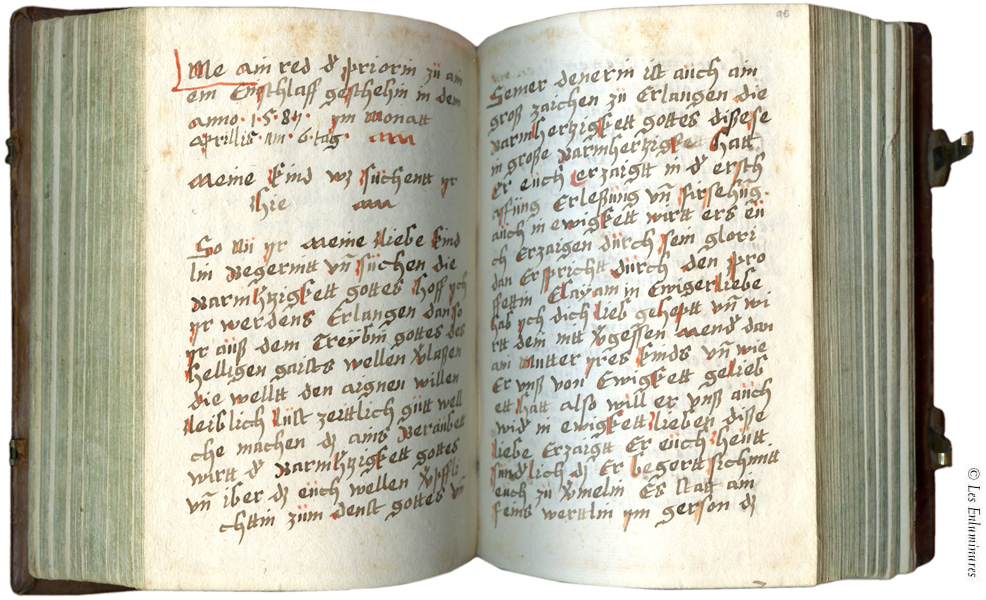 Me ain red d' priorin zů am
em Enschlaff geschehin in dem
anno · 1 · 5 · 84 · ym monatt
aprillis am · 6 · tag ·
Meine kind wz süchentt yr
hie
So nü yr meine liebe kind
lin Begerntt vn̄ süchen die
Barmh'tzigkett gottes hoff ych
yr werdens Erlangen dan so
yr auß dem Treybin gottes des
helligen gaists wellen v'laßen
die welltt den aignen willen
leiblich lüst zerttlich gütt well
che machen dz ains Beraubett
wirtt d' Barmh'tzigkett gottes
vn̄ iber dz eüch wellen v'pffli
chttin züm denst gottes vn̄
96
Seiner denerin ist aüch ain
groß zaichen zü Erlangen die
Barmhertzigkett gottes dißese
in große Barmhertzigkett hatt
Er eüch erzaigtt in d' ersch
affüng Erleßüng vn̄ firsehüg.
aüch in ewigkett wirtt ers eü
ch Erzaigen dürch sein glori
dan Er sprichtt dürch den pro
ffettin Esayam in Ewiger liebe
hab ych dich lieb geheptt vn̄ wi
rtt dein nitt v'gessen mend' dan
ain mütter yres kinds vn̄ wie
Er vnß von Ewigkett gelieb
ett hatt also will er vnß aüch
wid' in ewigkett lieben diße
liebe Erzaigtt Er eüch heütt.
sündlich dz Er begertt sich mitt
eüch zü v'melin Es statt am
seins werttlin ym gerson dz
© Les Enluminures